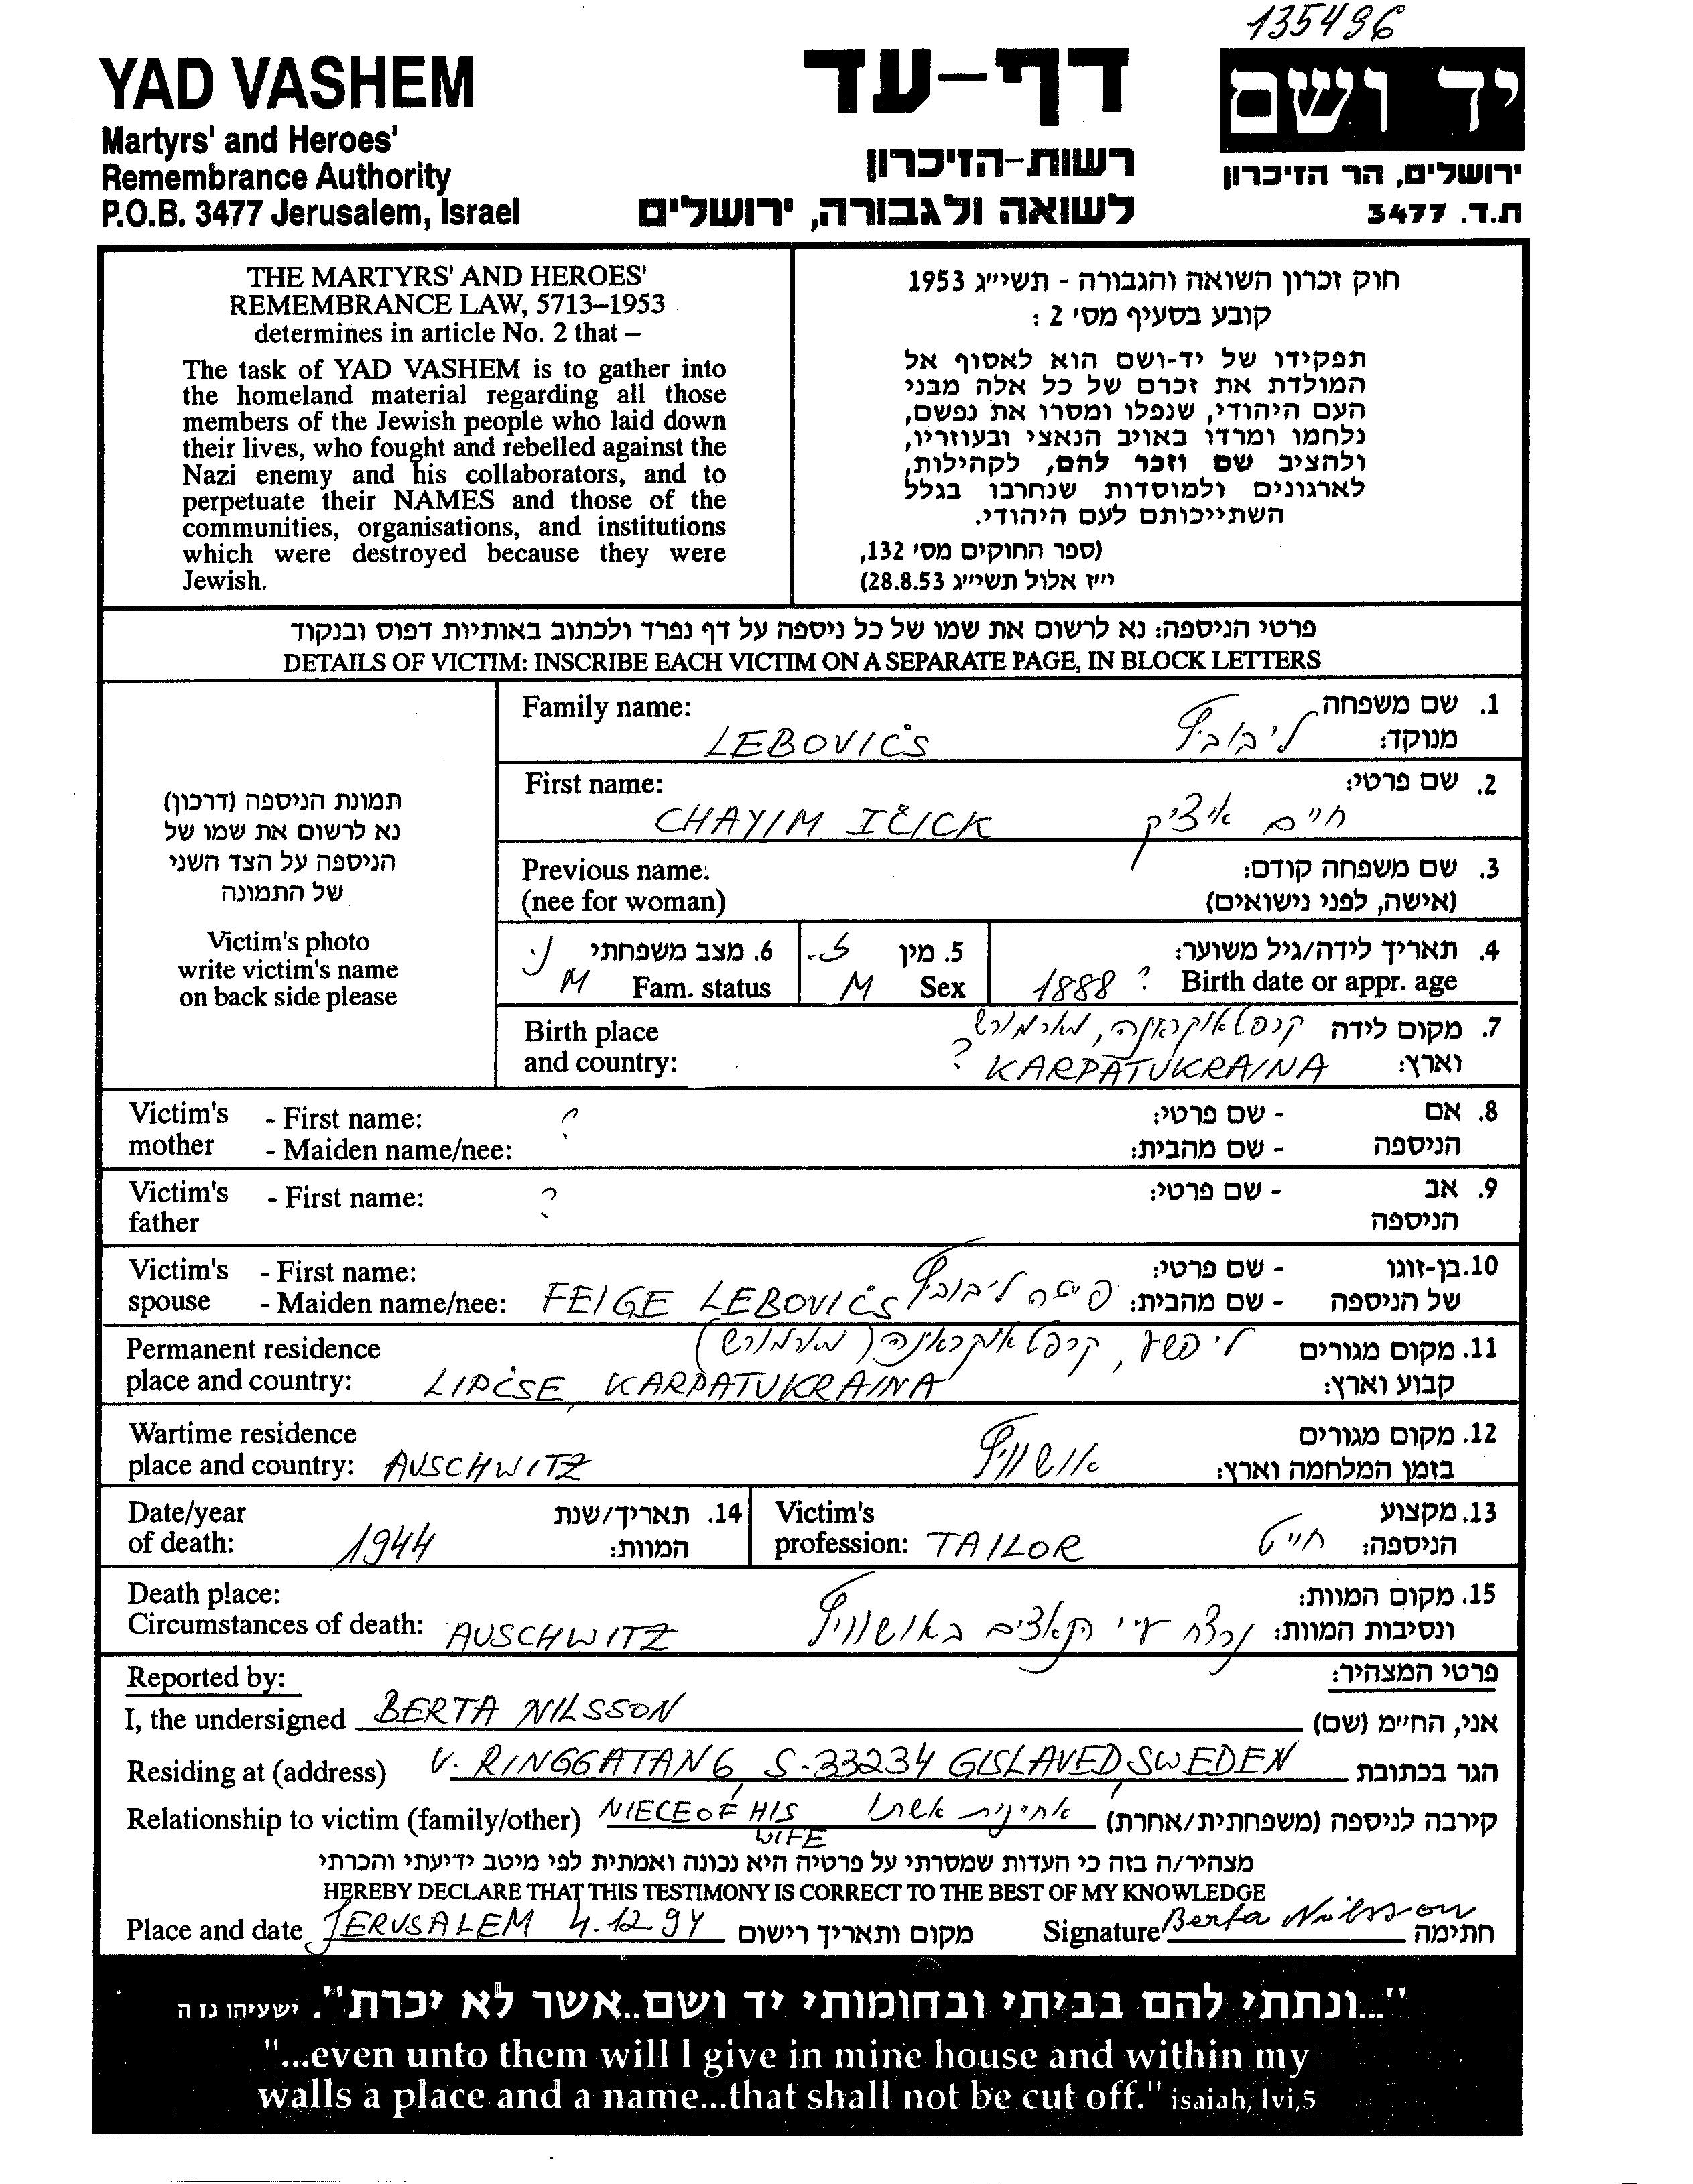 135496
YAD VASHEM
Martyrs' and Heroes'
Remembrance Authority
P.O.B. 3477 Jerusalem, Israel
דף-עד
רשות-הזיכרון
לשואה ולגבורה, ירושלים
יד ושם
ירושלים, הר הזיכרון
ת.ד. 3477
THE MARTYRS' AND HEROES'
REMEMBRANCE LAW, 5713–1953
determines in article No. 2 that –
The task of YAD VASHEM is to gather into
the homeland material regarding all those
members of the Jewish people who laid down
their lives, who fought and rebelled against the
Nazi enemy and his collaborators, and to
perpetuate their NAMES and those of the
communities, organisations, and institutions
which were destroyed because they were
Jewish.
חוק זכרון השואה והגבורה - תשי״ג 1953
קובע בסעיף מס' 2 :
תפקידו של יד-ושם הוא לאסוף אל
המולדת את זכרם של כל אלה מבני
העם היהודי, שנפלו ומסרו את נפשם,
נלחמו ומרדו באויב הנאצי ובעוזריו,
ולהציב שם וזכר להם, לקהילות,
לארגונים ולמוסדות שנחרבו בגלל
השתייכותם לעם היהודי.
(ספר החוקים מס' 132,
י״ז אלול תשי״ג 28.8.53)
פרטי הניספה: נא לרשום את שמו של כל ניספה על דף נפרד ולכתוב באותיות דפוס ובנקוד
DETAILS OF VICTIM: INSCRIBE EACH VICTIM ON A SEPARATE PAGE, IN BLOCK LETTERS
תמונת הניספה (דרכון)
נא לרשום את שמו של
הניספה על הצד השני
של התמונה
Victim's photo
write victim's name
on back side please
Family name: 1. שם משפחה
LEBOVIČS ליבוביץ מנוקד:
First name: 2. שם פרטי:
CHAYIM IČICK חיים איציק
Previous name: 3. שם משפחה קודם:
(nee for woman) (אישה, לפני נישואים)
6. מצב משפחתי נ. 5. מין ז. 4. תאריך לידה/גיל משוער:
M Fam. status M Sex 1888 ? Birth date or appr. age
Birth place 7. מקום לידה קרפטאוקראינה, מארמורש
and country: ? KARPATUKRAINA וארץ:
Victim's - First name: ? - שם פרטי: 8. אם
mother - Maiden name/nee: - שם מהבית: הניספה
Victim's - First name: ? - שם פרטי: 9. אב
father הניספה
Victim's - First name: - שם פרטי: 10. בן-זוגו
spouse - Maiden name/nee: FEIGE LEBOVIČS פיגה ליבוביץ - שם מהבית: של הניספה
Permanent residence 11. מקום מגורים ליפשע, קרפטאוקראינה (מארמורש)
place and country: LIPČSE, KARPATUKRAINA קבוע וארץ:
Wartime residence 12. מקום מגורים
place and country: AUSCHWITZ אושוויץ בזמן המלחמה וארץ:
Date/year 14. תאריך/שנת Victim's 13. מקצוע
of death: 1944 המוות: profession: TAILOR חייט הניספה:
Death place: 15. מקום המוות:
Circumstances of death: AUSCHWITZ נרצח ע״י הנאצים באושוויץ ונסיבות המוות:
Reported by: פרטי המצהיר:
I, the undersigned BERTA NILSSON אני, החי״מ (שם)
Residing at (address) V. RINGGATAN 6, S-33234 GISLAVED, SWEDEN הגר בכתובת
Relationship to victim (family/other) NIECE OF HIS אחינית אשתו קירבה לניספה (משפחתית/אחרת)
WIFE
מצהיר/ה בזה כי העדות שמסרתי על פרטיה היא נכונה ואמתית לפי מיטב ידיעתי והכרתי
HEREBY DECLARE THAT THIS TESTIMONY IS CORRECT TO THE BEST OF MY KNOWLEDGE
Place and date JERUSALEM 4.12.94 מקום ותאריך רישום Signature Berta Nilsson חתימה
"...ונתתי להם בביתי ובחומותי יד ושם..אשר לא יכרת". ישעיהו נו ה
"...even unto them will I give in mine house and within my
walls a place and a name...that shall not be cut off." isaiah, lvi,5